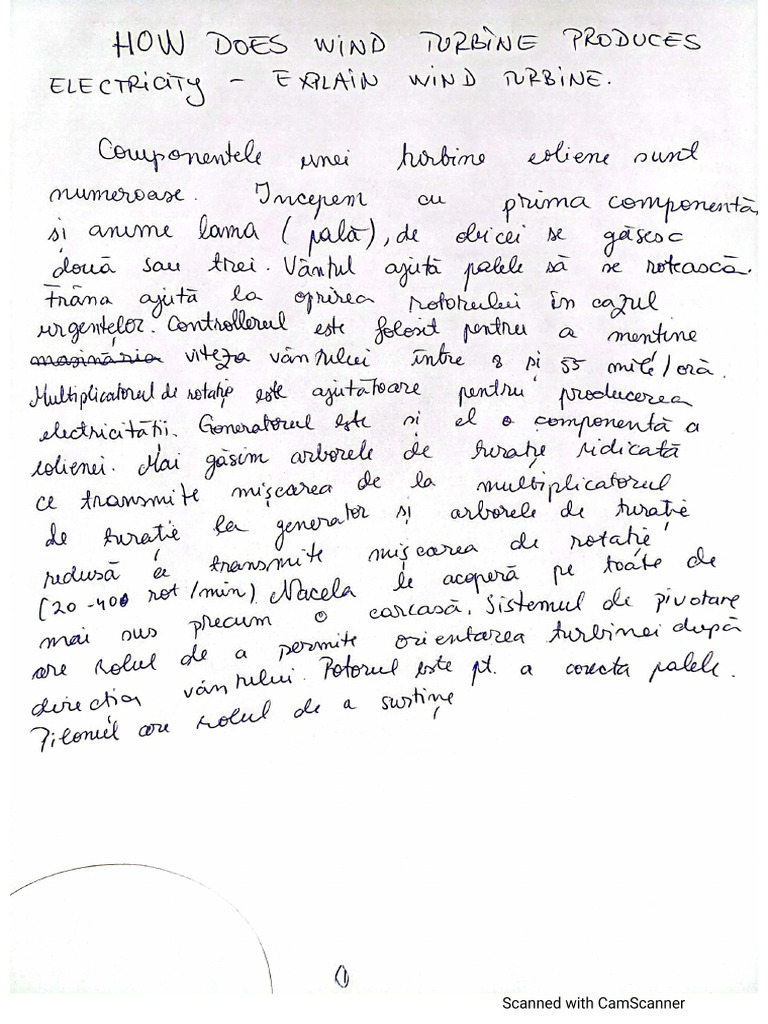 HOW DOES WIND TURBINE PRODUCES
ELECTRICITY - EXPLAIN WIND TURBINE.
Componentele unei turbine eoliene sunt
numeroase. Începem cu prima componentă,
și anume lama (pală), de obicei se găsesc
două sau trei. Vântul ajută palele să se rotească.
Frâna ajută la oprirea rotorului în cazul
urgențelor. Controllerul este folosit pentru a menține
mașinăria viteza vântului între 8 și 55 mile/oră.
Multiplicatorul de rotație este ajutătoare pentru producerea
electricității. Generatorul este și el o componentă a
eolienei. Mai găsim arborele de turație ridicată
ce transmite mișcarea de la multiplicatorul
de turație la generator și arborele de turație
redusă ce transmite mișcarea de rotație
(20-400 rot/min). Nacela le acoperă pe toate de
mai sus precum o carcasă. Sistemul de pivotare
are rolul de a permite orientarea turbinei după
direcția vântului. Rotorul este pt. a conecta palele.
Pilonul are rolul de a susține
1
Scanned with CamScanner